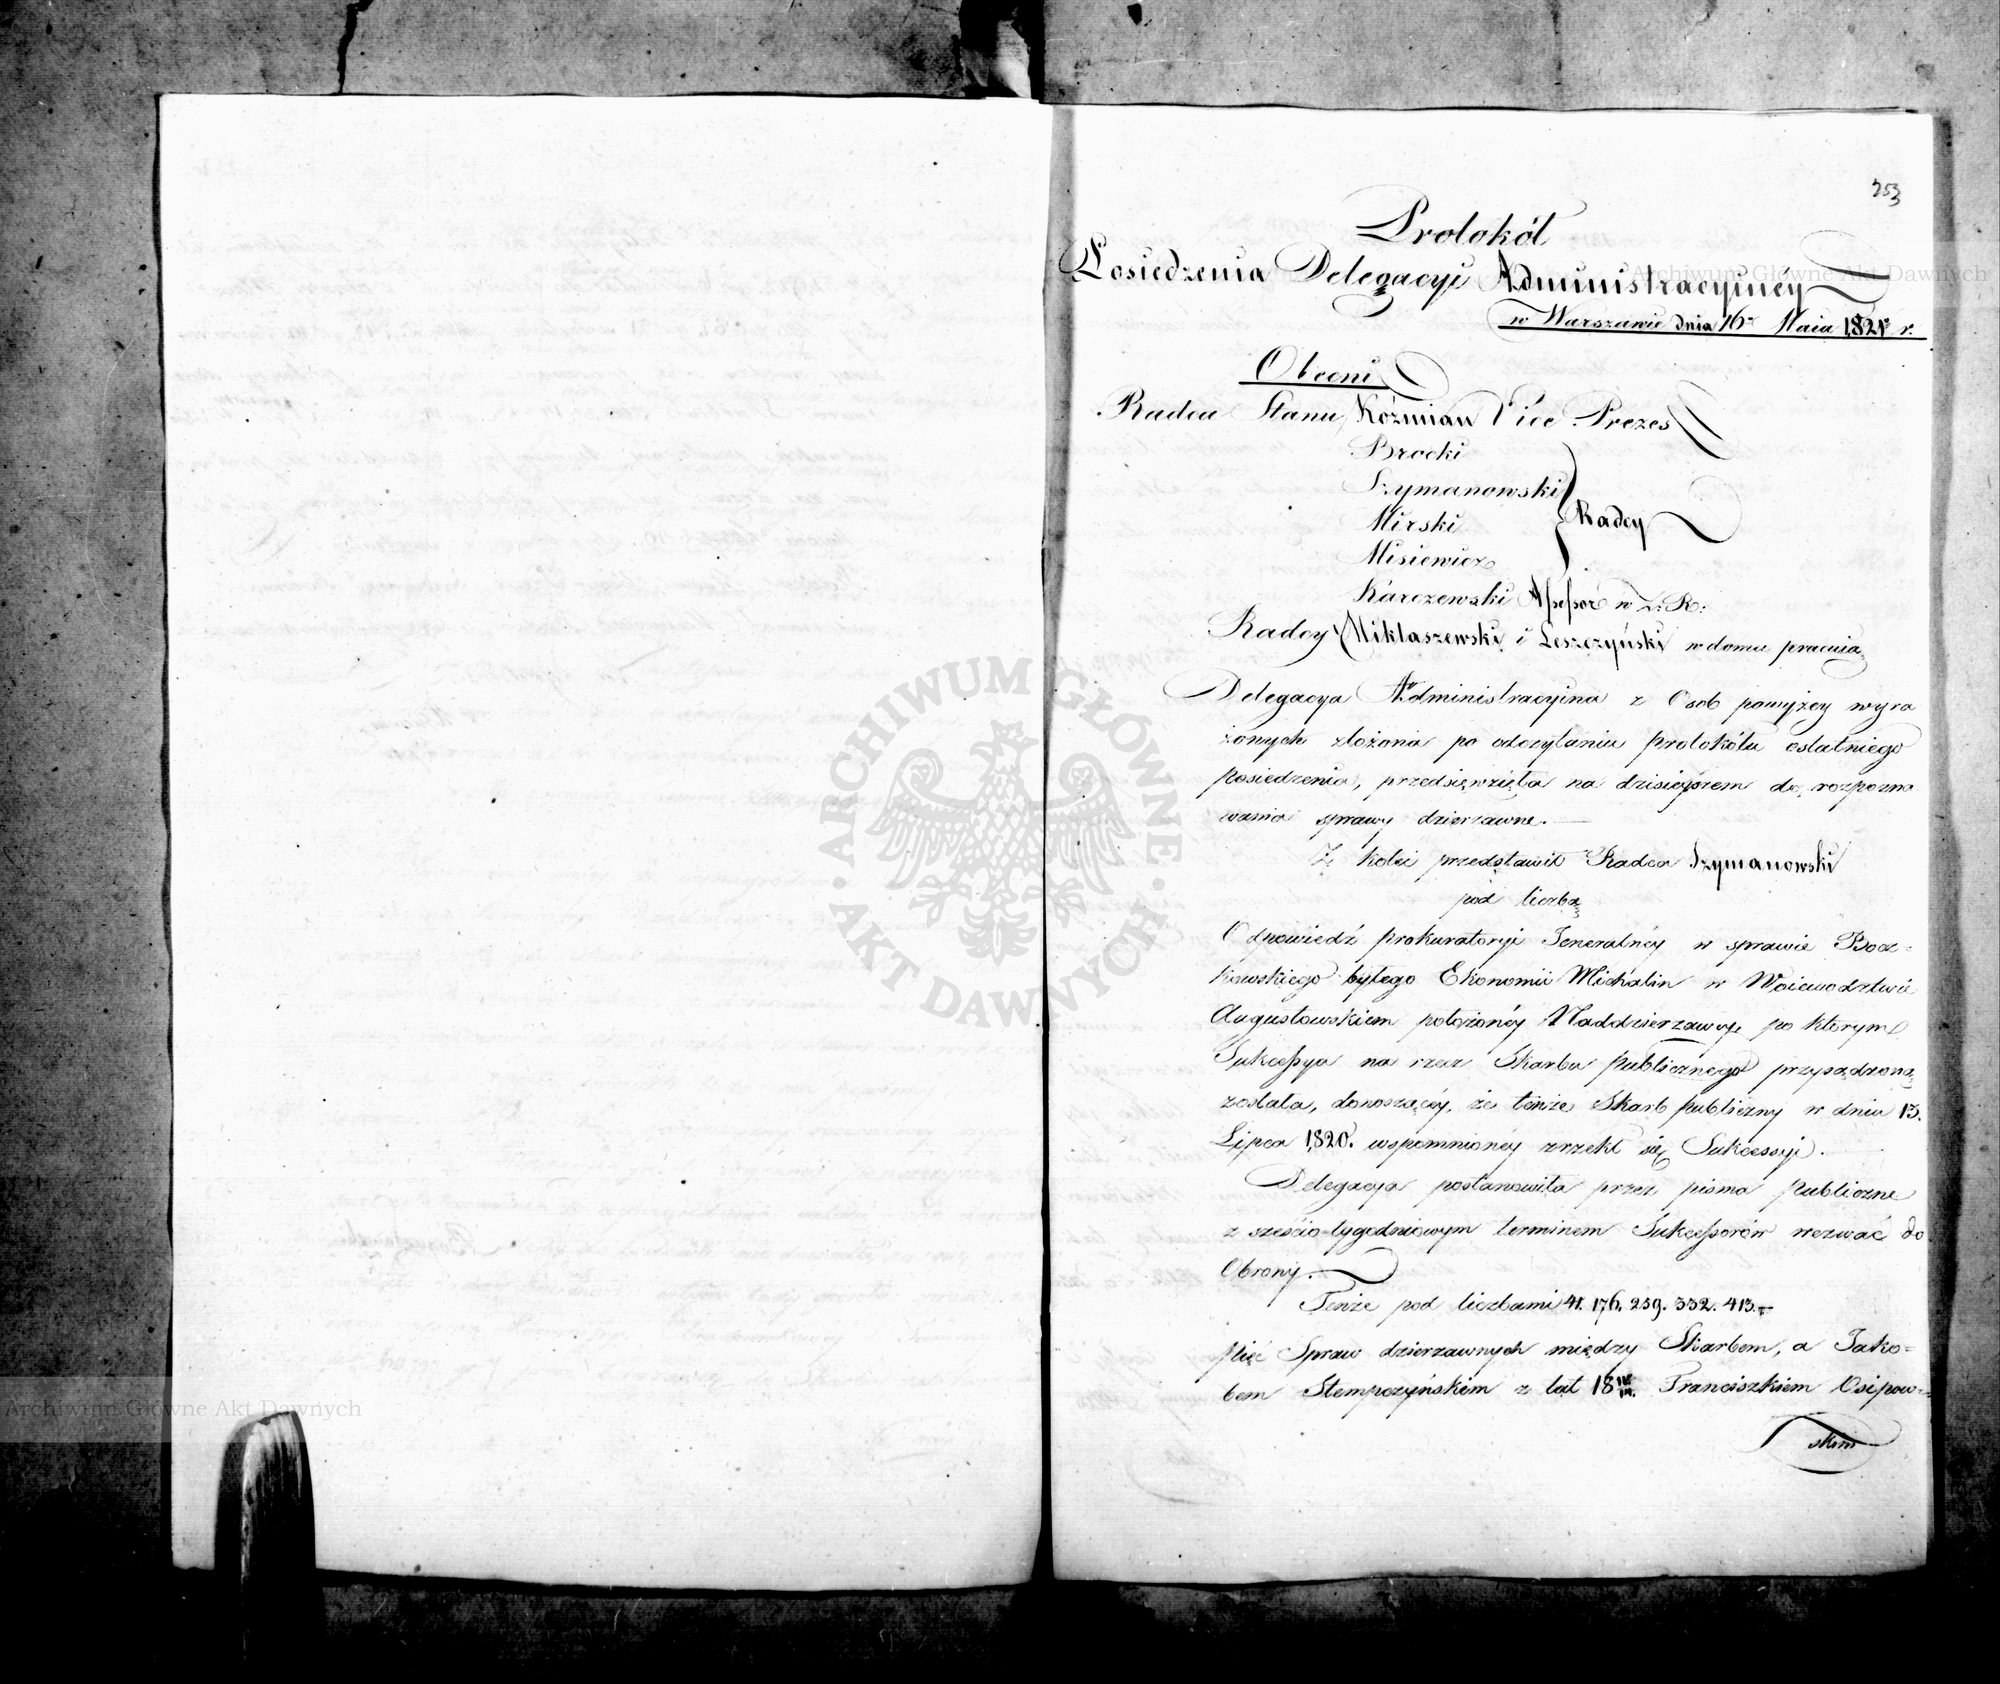 353
Protokół
Posiedzenia Delegacyi Administracyinéy
w Warszawie dnia 16º Maia 1821º r.
Obecni
Radca Stanu Koźmian Vice Prezes
Brocki
Szymanowski
Mirski
Radcy
Misiewicz
Karczewski Assessor w Z: R:
Radcy Miklaszewski i Leszczyński w domu pracuią
Delegacya Administracyina z Osob powyżey wyra
żonych złożona po odczytaniu protokółu ostatniego
posiedzenia, przedsięwzięła na dzisieyszem do rozpozna
wania sprawy dzierzawne.
Z kolei przedstawił Radca Szymanowski
pod liczbą
Odpowiedź prokuratoryi Jeneralnéy w sprawie Bocz-
kowskiego byłego Ekonomii Michalin w Woiewodztwie
Augustowskiem położonéy Naddzierzawcy po ktorym
Sukcessya na rzecz Skarbu publicznego przysądzona
została, donoszącéy, że tenże Skarb publiczny w dniu 13.
Lipca 1820. wspomnionéy zrzekł się Sukcessyi.
Delegacya postanowiła przez pisma publiczne
z sześcio-tygodniowym terminem Sukcessorów wezwać do
Obrony.
Tenże pod liczbami 41. 176. 259. 332. 413.
pięć Spraw dzierzawnych między Skarbem, a Jako-
bem Stempczyńskim z lat 18 Franciszkiem Osipow-
skim
Archiwum Główne Akt Dawnych
Archiwum Główne Akt Dawnych
ARCHIWUM GŁÓWNE · AKT DAWNYCH ·